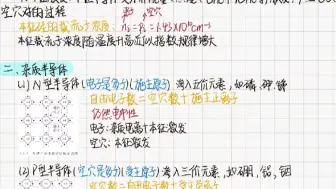 空穴对的过程
电子 空穴
本征载流子浓度: n₀=p₀=1.43×10¹⁰cm⁻³
本征载流子浓度随温度升高近似指数规律增大
二、杂质半导体
(1) N型半导体(电子是多子)(施主原子) 掺入五价元素,如磷、砷、锑
自由电子数=空穴数+施主正离子
仍然电中性
电子:杂质电离+本征激发
空穴:本征激发
(2) P型半导体(空穴是多子)(受主原子) 掺入三价元素,如硼、铝、铟
空穴数=自由电子数+受主负离子